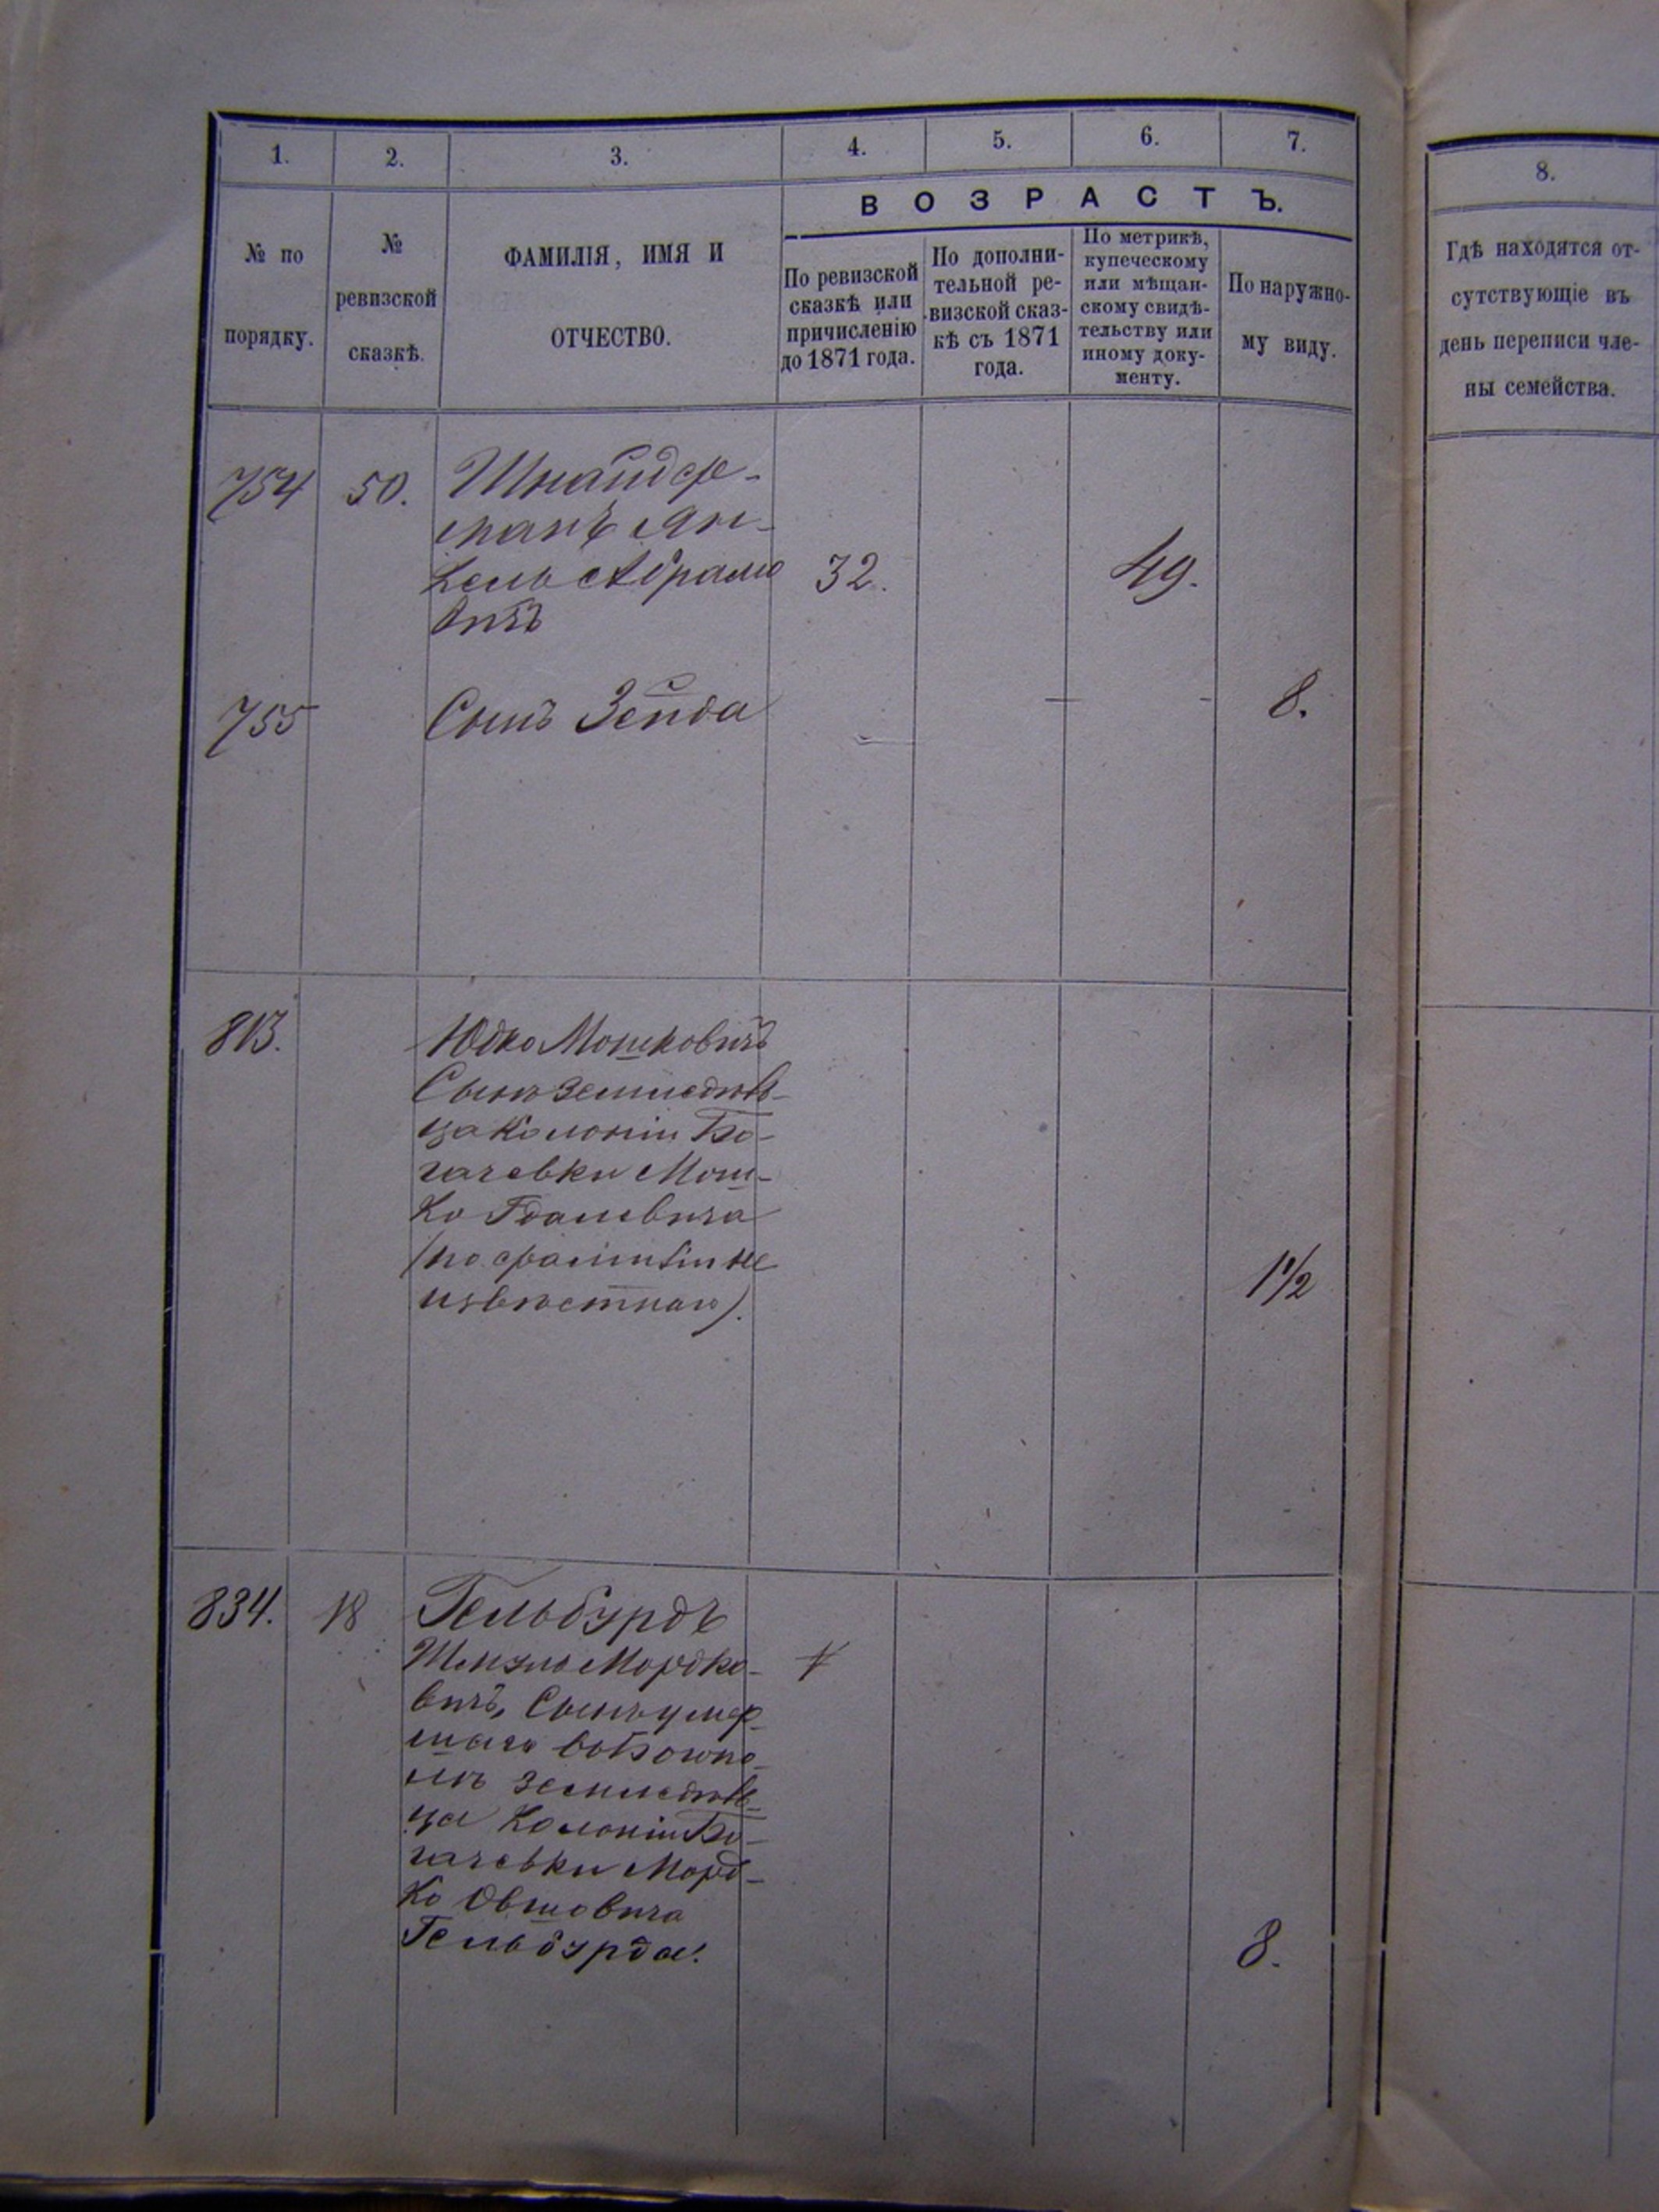 1.
2.
3.
4.
5.
6.
7.
8.
ВОЗРАСТЪ.
№ по
порядку.
№
ревизской
сказкѣ.
ФАМИЛІЯ, ИМЯ И
ОТЧЕСТВО.
По ревизской
сказкѣ или
причисленію
до 1871 года.
По дополни-
тельной ре-
визской сказ-
кѣ съ 1871
года.
По метрикѣ,
купеческому
или мѣщан-
скому свидѣ-
тельству или
иному доку-
менту.
По наружно-
му виду.
Гдѣ находятся от-
сутствующіе въ
день переписи чле-
ны семейства.
754
50.
Шнайдер-
манъ Ян-
кель Абрамо
вичъ
32.
49.
755
Сынъ Зейда
8.
813.
Юдко Мошковичъ
Сынъ земледѣль-
ца Колоніи Бо-
гачевки Мош-
ко Гдалевича
(по фамиліи не
извѣстнаго).
1 1/2
834.
18
Гельбурдъ
Мордко-
вичъ, Сынъ умер-
шаго
земледѣль-
ца Колоніи Бо-
гачевки Морд-
ко Овшовича
Гельбурда.
8.